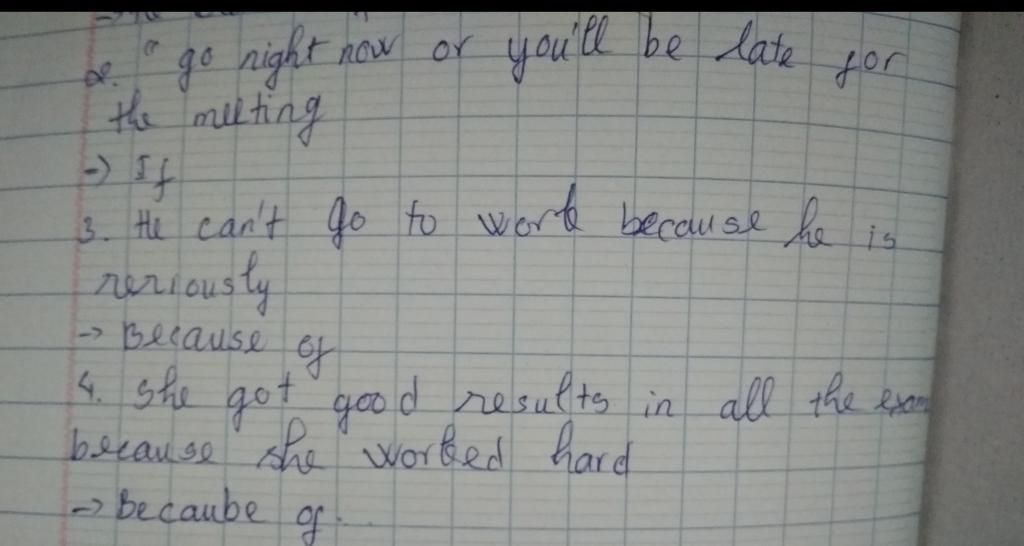 2. " go right now or you'll be late for
the meeting
-> If
3. He can't go to work because he is
seriously
-> Because of
4. She got good results in all the exam
because she worked hard
-> Becaube of.